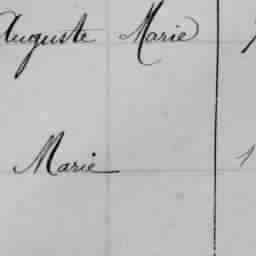 Auguste Marie
Marie